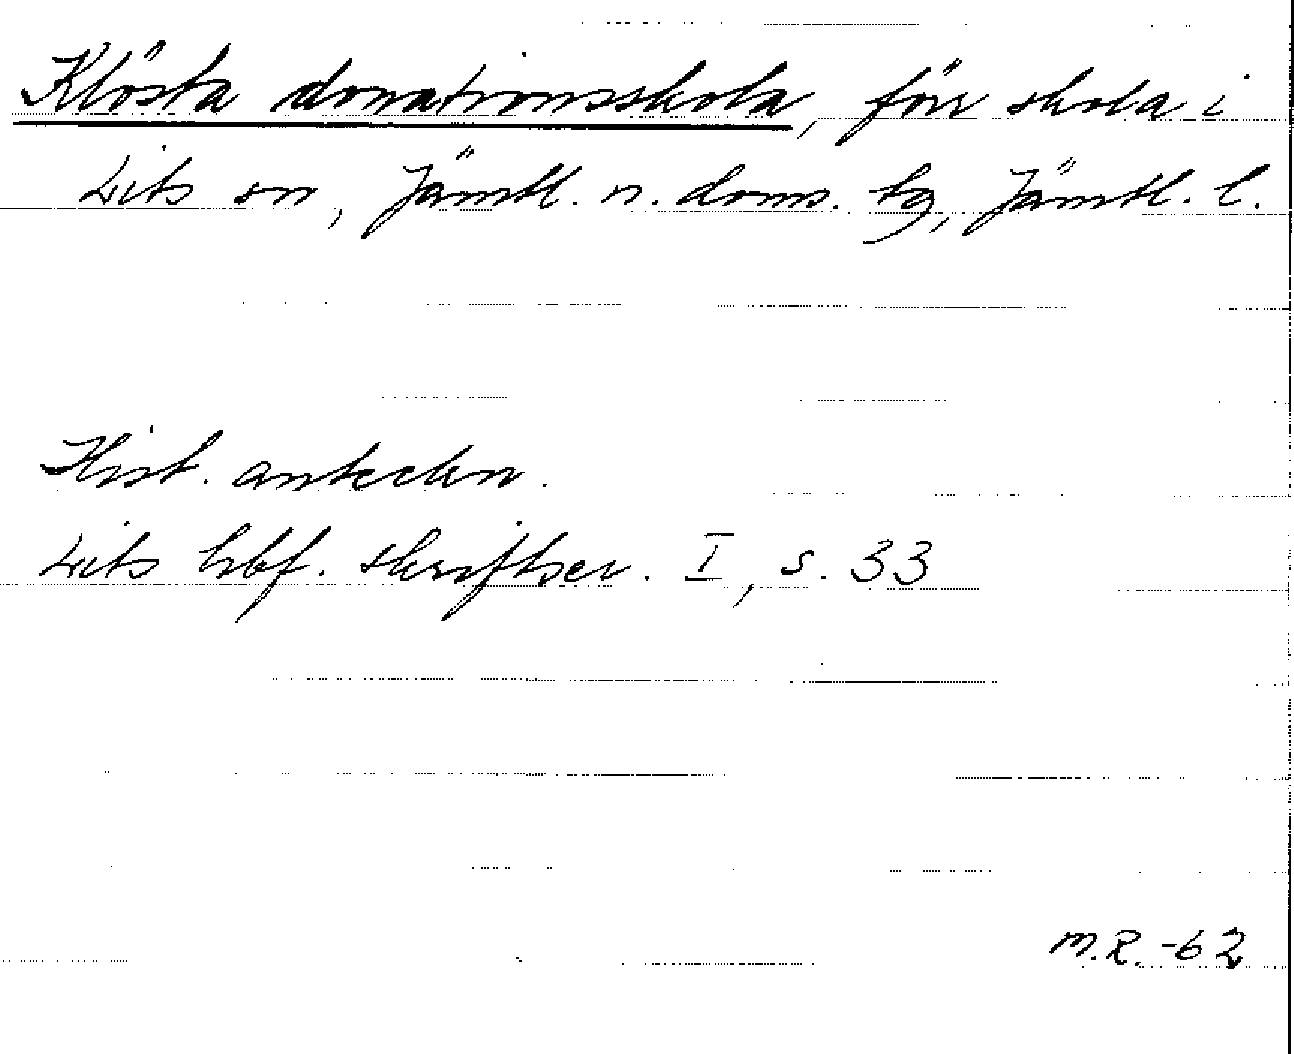 Klösta donationsskola, förr skola i
Lits sn, Jämtl. n. doms. tg, Jämtl. l.
Hist. anteckn.
Lits hbf. skriftser. I, s. 33
M.R. -62